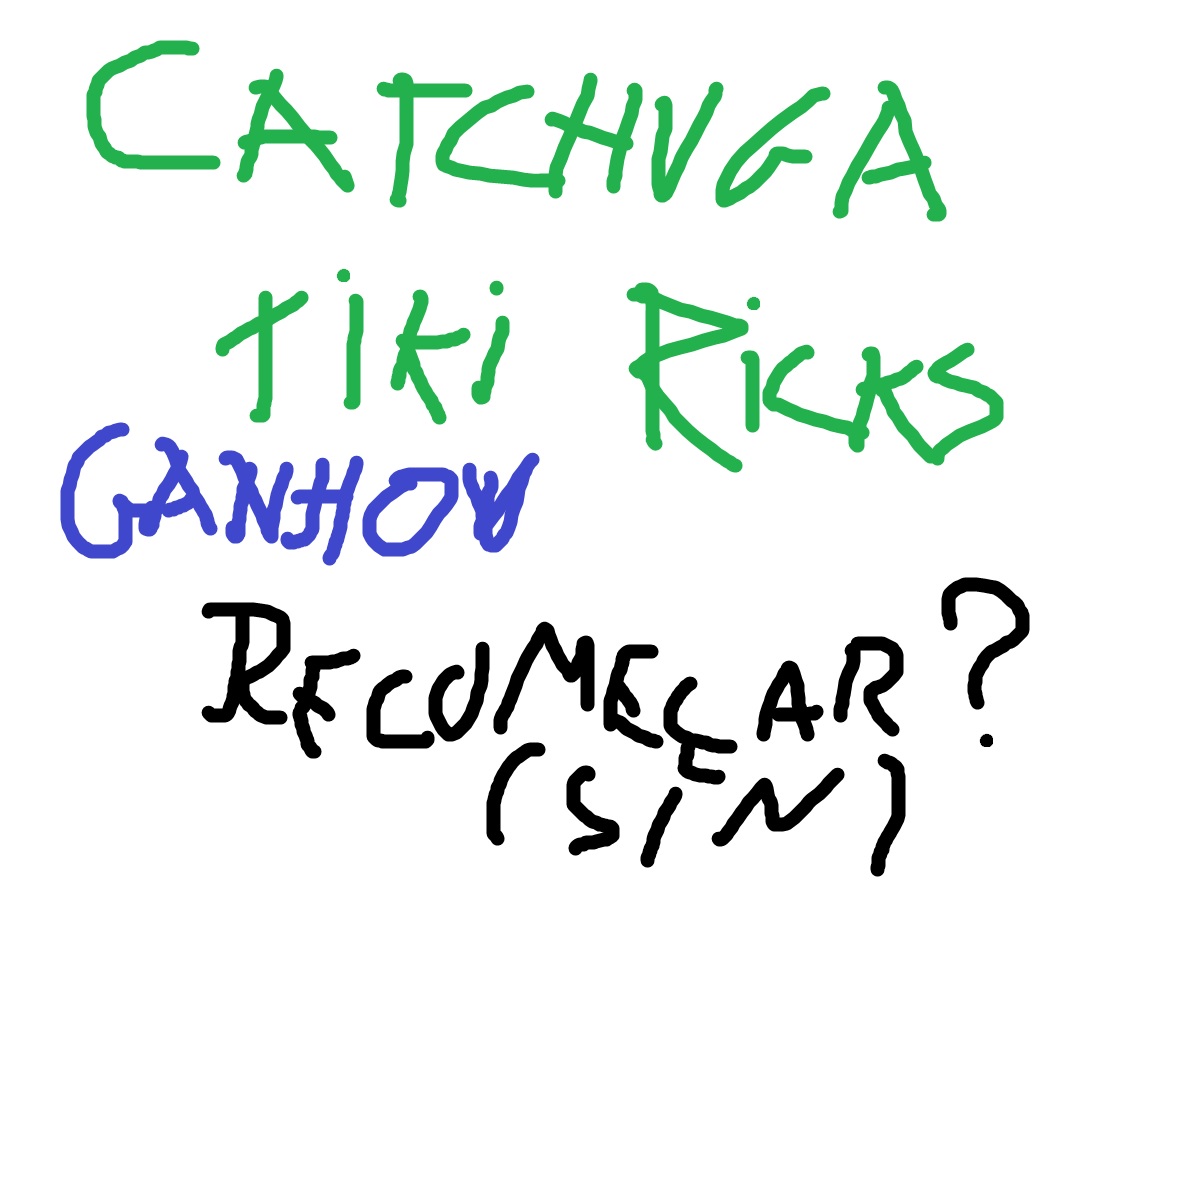 CATCHUGA
TiKi RicKS
GANHOU
RECOMEÇAR?
(S/N)